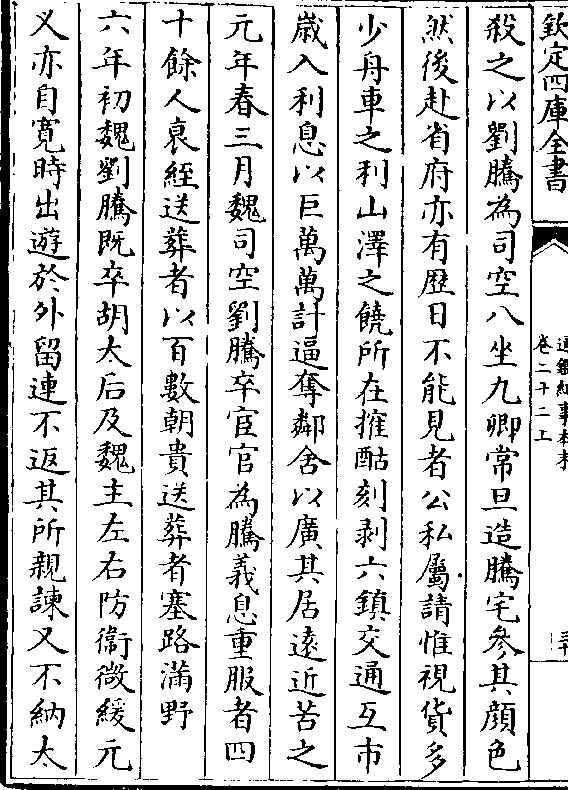 欽定四庫全書
通鑑紀事本末
卷二十二上
殺之以劉騰為司空八坐九卿常旦造騰宅參其顔色
然後赴省府亦有歴日不能見者公私屬請惟視貨多
少舟車之利山澤之饒所在㩁酤刻剥六鎮交通互市
嵗入利息以巨萬萬計逼奪鄰舍以廣其居逺近苦之
元年春三月魏司空劉騰卒宦官為騰義息重服者四
十餘人衰絰送葬者以百數朝貴送葬者塞路滿野
六年初魏劉騰既卒胡太后及魏主左右防衞微緩元
乂亦自寛時出遊於外留連不返其所親諫乂不納太